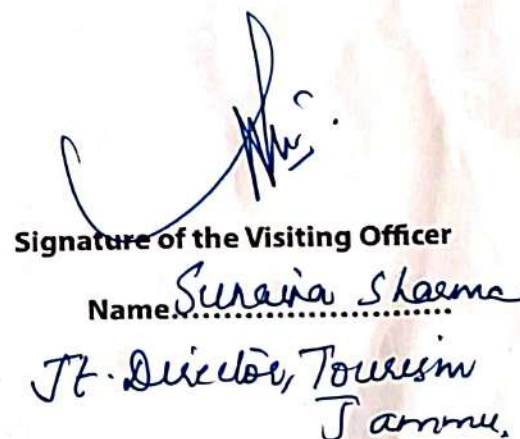 Signature of the Visiting Officer
Name.Sunaina Sharma
Jt. Director, Tourism
Jammu.